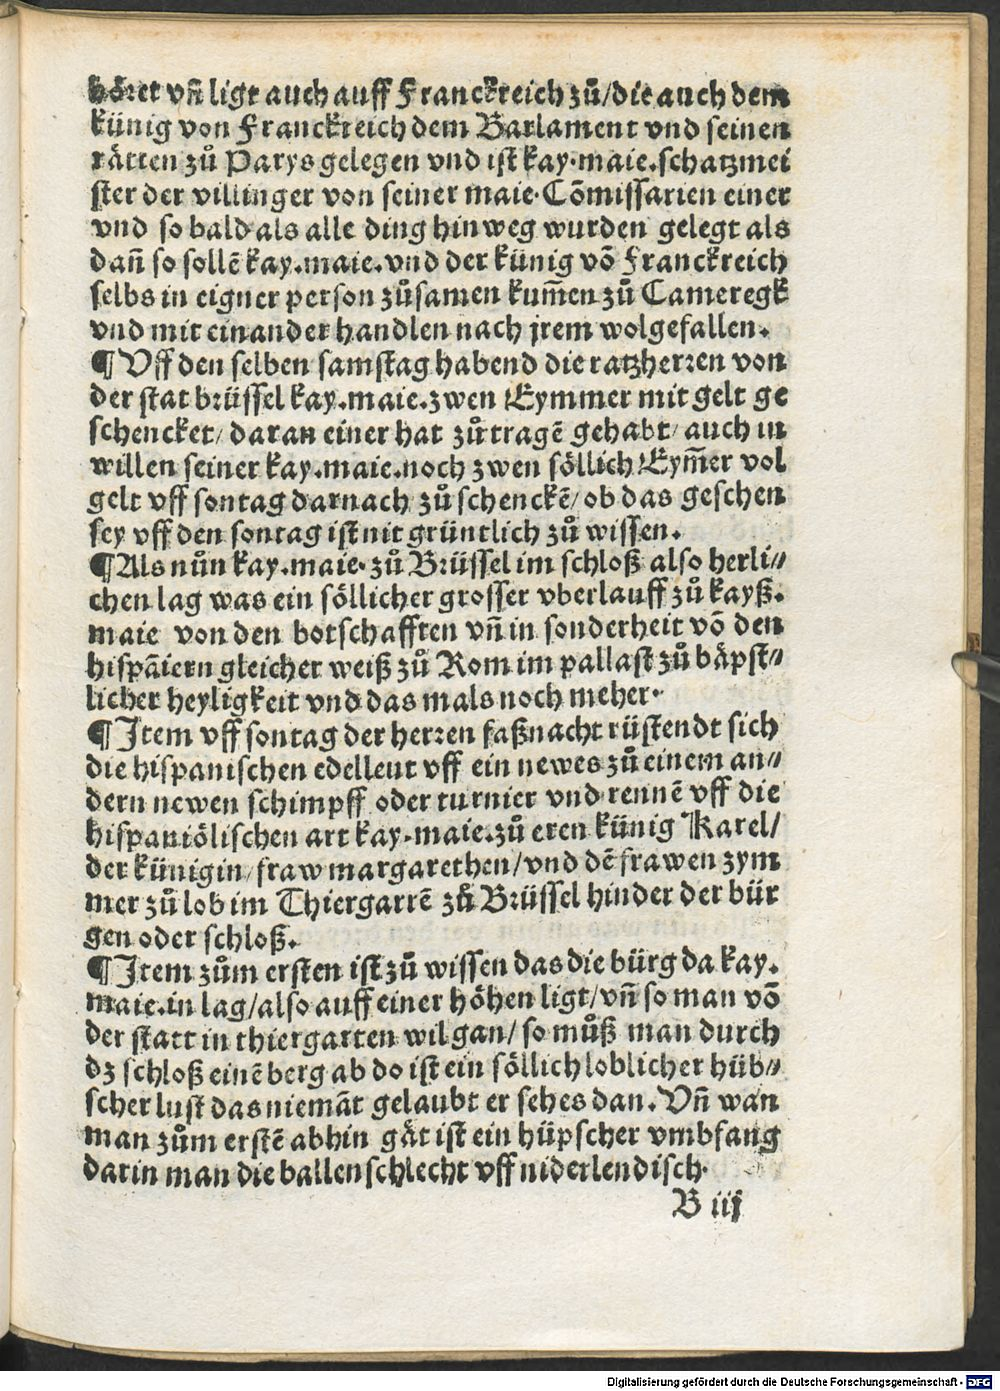 höret vñ ligt auch auff Franckreich zů/die auch dem
künig von Franckreich dem Barlament vnd seinen
rätten zů Parys gelegen vnd ist kay.maie.schatzmei
ster der villinger von seiner maie.Cōmissarien einer
vnd so bald als alle ding hinweg wurden gelegt als
dañ so sollē kay.maie.vnd der künig vō Franckreich
selbs in eigner person zůsamen kum̄en zů Cameregk
vnd mit einander handlen nach jrem wolgefallen.
¶Vff den selben samstag habend die ratzherren von
der stat brüssel kay.maie.zwen Eymmer mit gelt ge
schencket/daran einer hat zů tragē gehabt/auch in
willen seiner kay.maie.noch zwen söllich Eym̄er vol
gelt vff sontag darnach zů schenckē/ob das geschen
sey vff den sontag ist nit gründtlich zů wissen.
¶Als nůn kay.maie.zů Brüssel im schloß also herli⸗
chen lag was ein söllicher grosser vberlauff zů kayß.
maie von den botschafften vñ in sonderheit vō den
hispāiern gleicher weiß zů Rom im pallast zů bäpst⸗
licher heyligkeit vnd das mals noch meher.
¶Item vff sontag der herren faßnacht rüstendt sich
die hispanischen edelleut vff ein newes zů einem an⸗
dern newen schimpff oder turnier vnd rennē vff die
hispaniölischen art kay.maie.zů eren künig Karel/
der künigin/fraw margarethen/vnd dē frawen zym
mer zů lob im Thiergartē zů Brüssel hinder der bür
gen oder schloß.
¶Item zům ersten ist zů wissen das die bürg da kay.
maie.in lag/also auff einer höhen ligt/vñ so man vō
der statt in thiergarten wil gan/so můß man durch
dz schloß einē berg ab do ist ein söllich loblicher hüb⸗
scher lust das niemāt gelaubt er sehes dan.Vñ wan
man zům erstē abhin gāt ist ein hüpscher vmbfang
darin man die ballen schlecht vff niderlendisch.
B iij
Digitalisierung gefördert durch die Deutsche Forschungsgemeinschaft - DFG